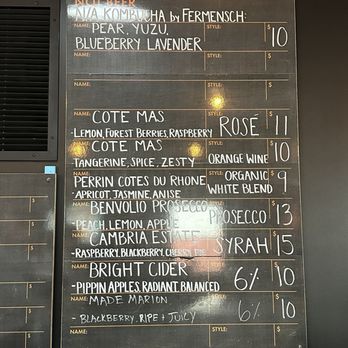 NON-BEER
N/A KOMBUCHA by FERMENSCH:
NAME: PEAR, YUZU, STYLE: $10
BLUEBERRY LAVENDER
NAME: STYLE: $
NAME: STYLE: $
NAME: COTE MAS STYLE: ROSÉ $11
-LEMON, FOREST BERRIES, RASPBERRY
NAME: COTE MAS STYLE: ORANGE WINE $10
TANGERINE, SPICE, ZESTY
NAME: PERRIN COTES DU RHONE STYLE: ORGANIC WHITE BLEND $9
-APRICOT, JASMINE, ANISE
BENVOLIO PROSECCO PROSECCO $13
-PEACH, LEMON, APPLE
CAMBRIA ESTATE SYRAH $15
-RASPBERRY, BLACKBERRY, CHERRY PIE
BRIGHT CIDER 6% $10
-PIPPIN APPLES, RADIANT, BALANCED
NAME: MADE MARION STYLE: 6% $10
- BLACKBERRY, RIPE + JUICY
NAME: STYLE: $